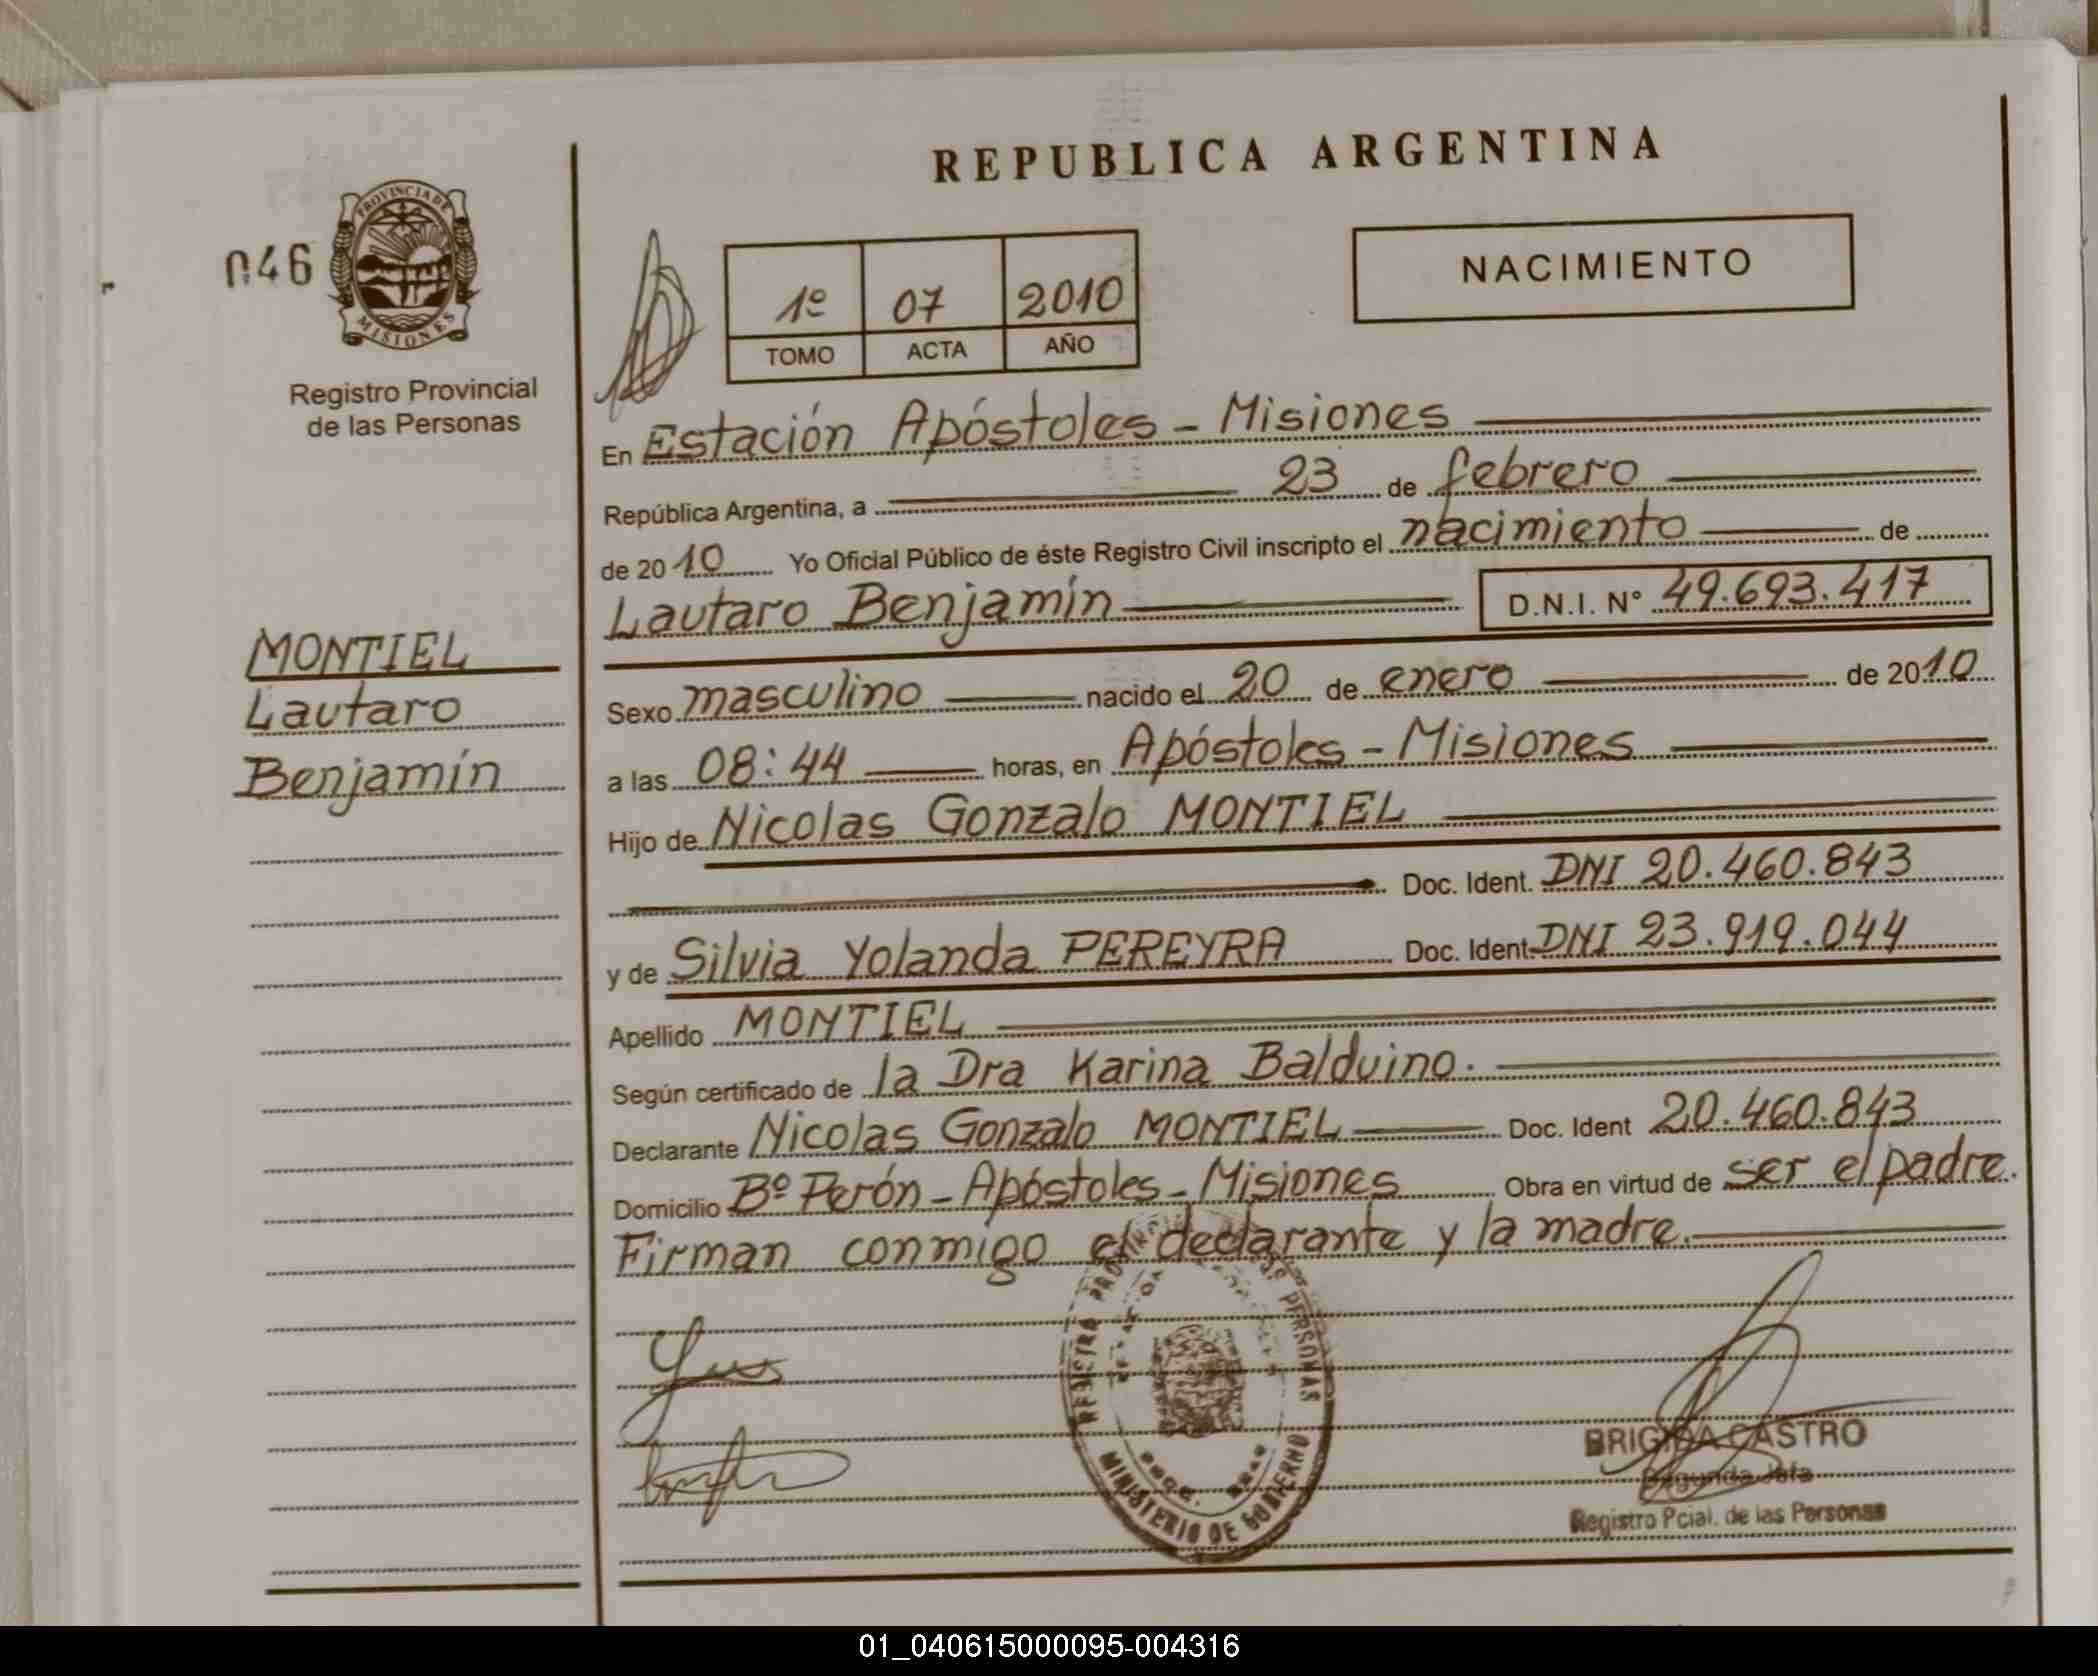 REPUBLICA ARGENTINA
046
PROVINCIA DE
MISIONES
Registro Provincial
de las Personas
1º 07 2010
TOMO ACTA AÑO
NACIMIENTO
En Estación Apóstoles - Misiones
República Argentina, a 23 de febrero
de 2010 Yo Oficial Público de éste Registro Civil inscripto el nacimiento de
Lautaro Benjamín D.N.I. Nº 49.693.417
MONTIEL
Lautaro
Benjamín
Sexo masculino nacido el 20 de enero de 2010
a las 08:44 horas, en Apóstoles - Misiones
Hijo de Nicolas Gonzalo MONTIEL
Doc. Ident. DNI 20.460.843
y de Silvia Yolanda PEREYRA Doc. Ident. DNI 23.919.044
Apellido MONTIEL
Según certificado de la Dra Karina Balduino.
Declarante Nicolas Gonzalo MONTIEL Doc. Ident 20.460.843
Domicilio Bº Perón - Apóstoles - Misiones Obra en virtud de ser el padre.
Firman conmigo el declarante y la madre.
REGISTRO DE LAS PERSONAS
MINISTERIO DE GOBIERNO
BRIGIDA CASTRO
Segunda Jefa
Registro Pcial. de las Personas
01_040615000095-004316